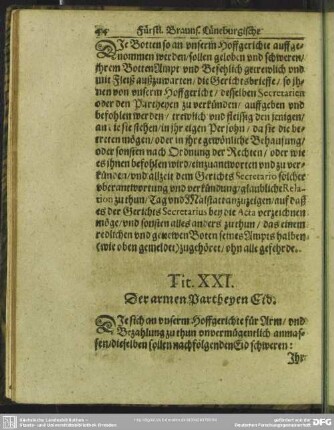 44 Fürstl. Braunſ. Lüneburgiſche
DIe Botten ſo an unſerm Hoffgerichte auffge-
nommen werden/ ſollen geloben und ſchweren/
ihrem Botten Ampt und Befehlich getrewlich und
mit Fleiß außzuwarten/ die Gerichtsbrieffe/ ſo ih-
nen von unſerm Hoffgericht/ deſſelben Secretarien
oder den Partheyen zu verkünden/ auffgeben und
befohlen werden/ trewlich und fleiſſig den jenigen/
an die ſie ſtehen/ in ihr eigen Perſohn/ da ſie die be-
tretten mögen/ oder in ihre gewönliche Behauſung/
oder ſonſten nach Ordnung der Rechten/ oder wie
es ihnen befohlen wird/ einzuantworten und zu ver-
künden/ und allzeit dem Gerichts Secretario ſolcher
uberantwortung und verkündung/ glaubliche Rela-
tion zu thun/ Tag und Malſtatt anzuzeigen/ auf daß
es der Gerichts Secretarius bey die Acta verzeichnen
möge/ und ſonſten alles anders zu thun/ das einem
redlichen und getrewen Boten ſeines Ampts halben
(wie oben gemeldet) zugehöret/ ohn alle gefehrde.
Tit. XXI.
Der armen Partheyen Eid.
DIe ſich an unſerm Hoffgerichte für Arm/ und
Bezahlung zu thun unvermügentlich anmaſ-
ſen/ dieſelben ſollen nachfolgenden Eid ſchweren:
Ihr